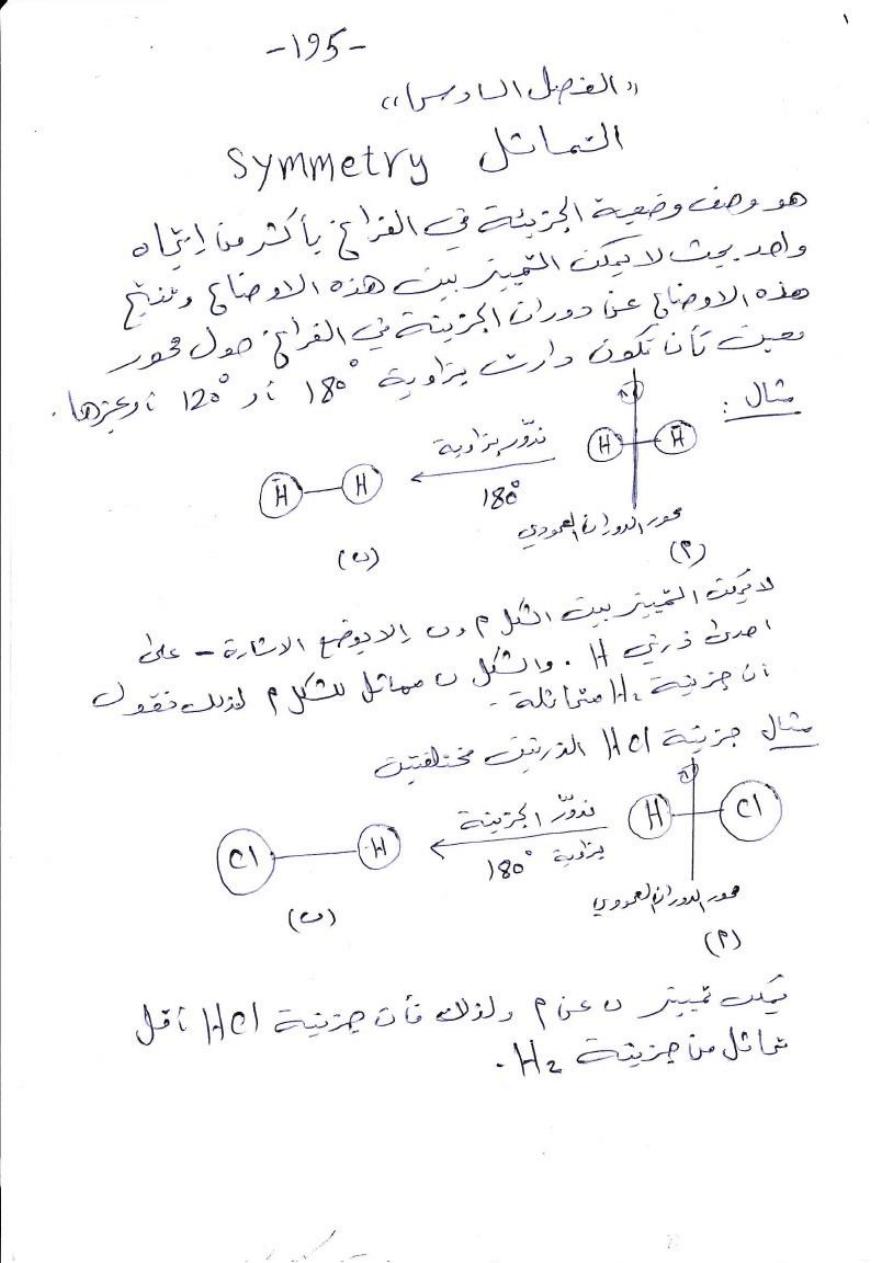 ١
-195-
"الفصل السادس"
التماثل Symmetry
هو وصف وضعية الجزيئة في الفراغ بأكثر من إتجاه
واحد بحيث لا يمكن التمييز بين هذه الاوضاع وتنتج
هذه الاوضاع عن دوران الجزيئة في الفراغ حول محور
معين كأن تكون دارت بزاوية 180° أو 120° أوغيرها.
مثال :
H H
ندوّر بزاوية
180°
H̄ H
محور الدوران العمودي
(٢)
(ب)
لا يمكن التمييز بين الشكل ٢ و ب إلا بوضع الاشارة - على
احدى ذرتي H . والشكل ب مماثل للشكل ٢ لذلك نقول
أن جزيئة H₂ متماثلة .
مثال جزيئة HCl الذرتين مختلفتين
H Cl
ندوّر الجزيئة
بزاوية 180°
Cl H
محور الدوران العمودي
(٢)
(ب)
يمكن تمييز ب عن ٢ ولذلك فأن جزيئة HCl أقل
تماثل من جزيئة H₂ .